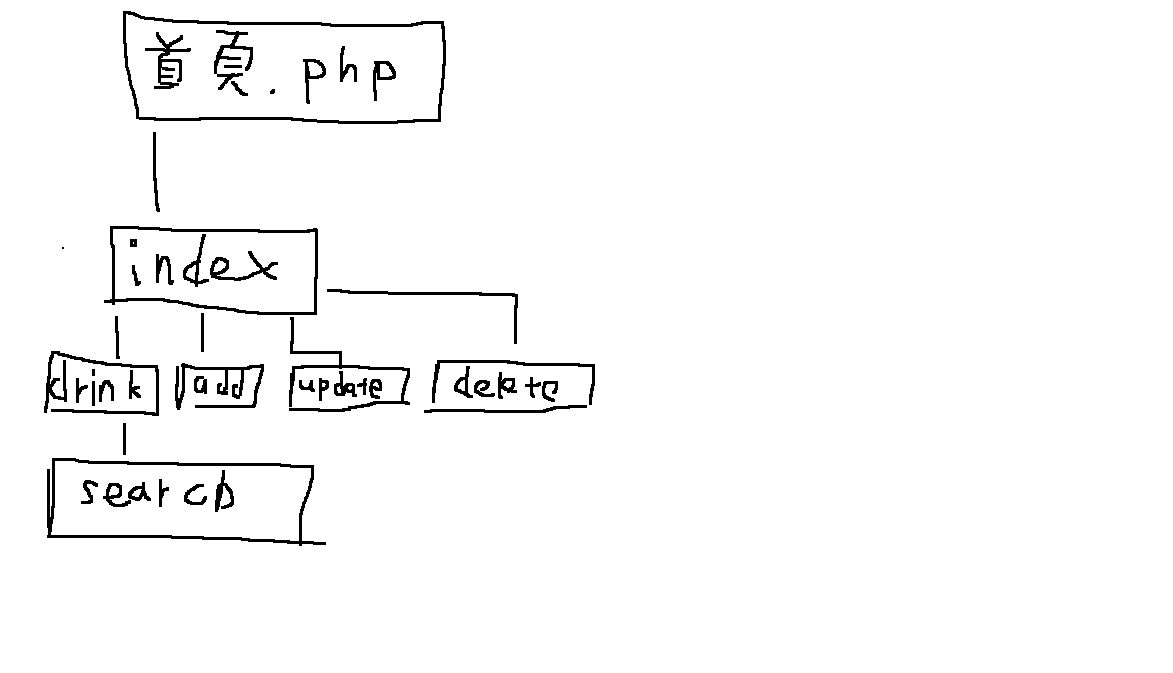 首頁.php
index
drink
add
update
delete
search